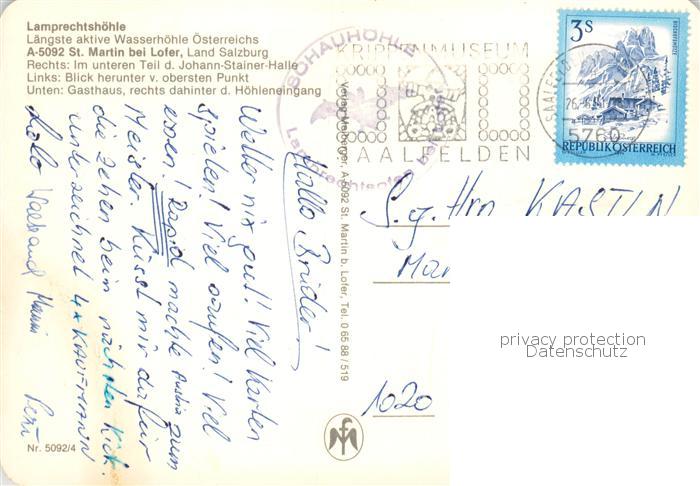 Lamprechtshöhle
Längste aktive Wasserhöhle Österreichs
A-5092 St. Martin bei Lofer, Land Salzburg
Rechts: Im unteren Teil d. Johann-Stainer-Halle
Links: Blick herunter v. obersten Punkt
Unten: Gasthaus, rechts dahinter d. Höhleneingang
Hallo Brüder!
Wetter nix gut! Viel Karten
spielen! Viel saufen! Viel
essen! Rapid machte Austria zum
Meister. Küsst mir dafür
die Zehen beim nächsten Kick.
unterzeichnet 4x KAUFMANN
Waltraud
Nr. 5092/4
SCHAUHÖHLE
Lamprechtsofen bei Lofer
KRIPPENMUSEUM
SAALFELDEN
SAALFELDEN
26.
5760
3S
BISCHOFSMÜTZE
REPUBLIK ÖSTERREICH
A-5092 St. Martin b. Lofer, Tel. 0 65 88 / 519
S.g. Hrn KASTLN
Mar
1020
privacy protection
Datenschutz